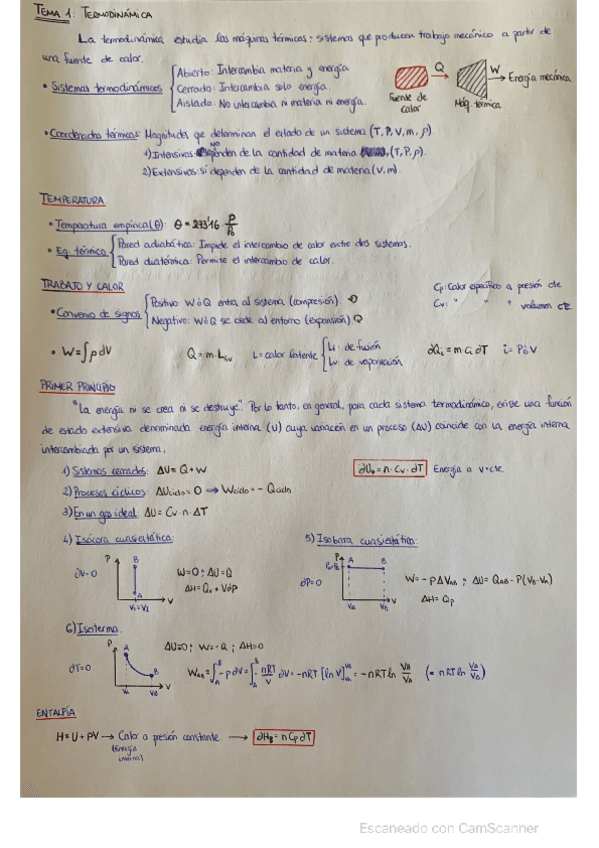 TEMA 1: TERMODINÁMICA
La termodinámica estudia las máquinas térmicas: sistemas que producen trabajo mecánico a partir de
una fuente de calor.
• Sistemas termodinámicos
Abierto: Intercambia materia y energía.
Cerrado: Intercambia solo energía.
Aislado: No intercambia ni materia ni energía.
Q W → Energía mecánica
Fuente de calor
Máq. térmica
• Coordenadas térmicas: Magnitudes que determinan el estado de un sistema (T, P, V, m, ρ).
1) Intensivas: no dependen de la cantidad de materia (T, P, ρ).
2) Extensivas: si dependen de la cantidad de materia (V, m).
TEMPERATURA
• Temperatura empírica (θ): θ = 273'16 P/P₀
• Eq. térmico
Pared adiabática: Impide el intercambio de calor entre dos sistemas.
Pared diatérmica: Permite el intercambio de calor.
TRABAJO Y CALOR
Cp: Calor específico a presión cte
Cv: " " " volumen cte
• Convenio de signos
Positivo: W ó Q entra al sistema (compresión).
Negativo: W ó Q se cede al entorno (expansión).
• W = ∫ p dV Q = m · L L = calor latente
Lf: de fusión
Lv: de vaporización
∂Qi = m Ci ∂T i = P ó V
PRIMER PRINCIPIO
"La energía ni se crea ni se destruye". Por lo tanto, en general, para cada sistema termodinámico, existe una función
de estado extensiva denominada energía interna (U) cuya variación en un proceso (ΔU) coincide con la energía interna
intercambiada por un sistema.
1) Sistemas cerrados: ΔU = Q + W
∂U = n · Cv · ∂T Energía a V = cte.
2) Procesos cíclicos: ΔUciclo = 0 → Wciclo = - Qciclo
3) En un gas ideal: ΔU = Cv · n · ΔT
4) Isócora cuasiestática:
∂V = 0
P B A V
W = 0 ; ΔU = Q
ΔH = Qv + VΔP
5) Isobara cuasiestática:
∂P = 0
P A B VA VB V
W = - p ΔVAB ; ΔU = QAB - P(VB - VA)
ΔH = Qp
6) Isoterma
∂T = 0
P A B VA VB V
ΔU = 0 ; W = - Q ; ΔH = 0
WAB = ∫ - p dV = ∫ - nRT/V ∂V = - nRT [ln V] = - nRT ln VB/VA (= nRT ln VA/VB)
ENTALPÍA
H = U + PV → Calor a presión constante → ∂H = n Cp ∂T
(Energía
interna)
Escaneado con CamScanner